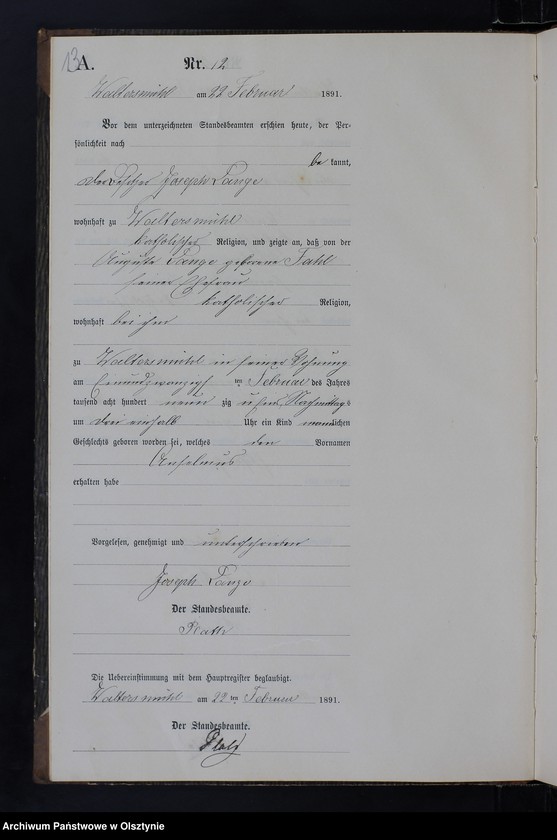 13 A.
Nr. 12
Waltersmühl am 22 Februar 1891.
Vor dem unterzeichneten Standesbeamten erschien heute, der Per-
sönlichkeit nach
be kannt,
der Joseph Lange
wohnhaft zu Waltersmühl
katholischer Religion, und zeigte an, daß von der
Auguste Lange geborene
seiner Ehefrau
katholischer Religion,
wohnhaft bei ihm
zu Waltersmühl in seiner Wohnung
am ten Februar des Jahres
tausend acht hundert neun zig und ein Nachmittags
um drei einhalb Uhr ein Kind männlichen
Geschlechts geboren worden sei, welches den Vornamen
Anselmus
erhalten habe
Vorgelesen, genehmigt und unterschrieben
Joseph Lange
Der Standesbeamte.
Die Uebereinstimmung mit dem Hauptregister beglaubigt.
Waltersmühl am 22 ten Februar 1891.
Der Standesbeamte.
Archiwum Państwowe w Olsztynie